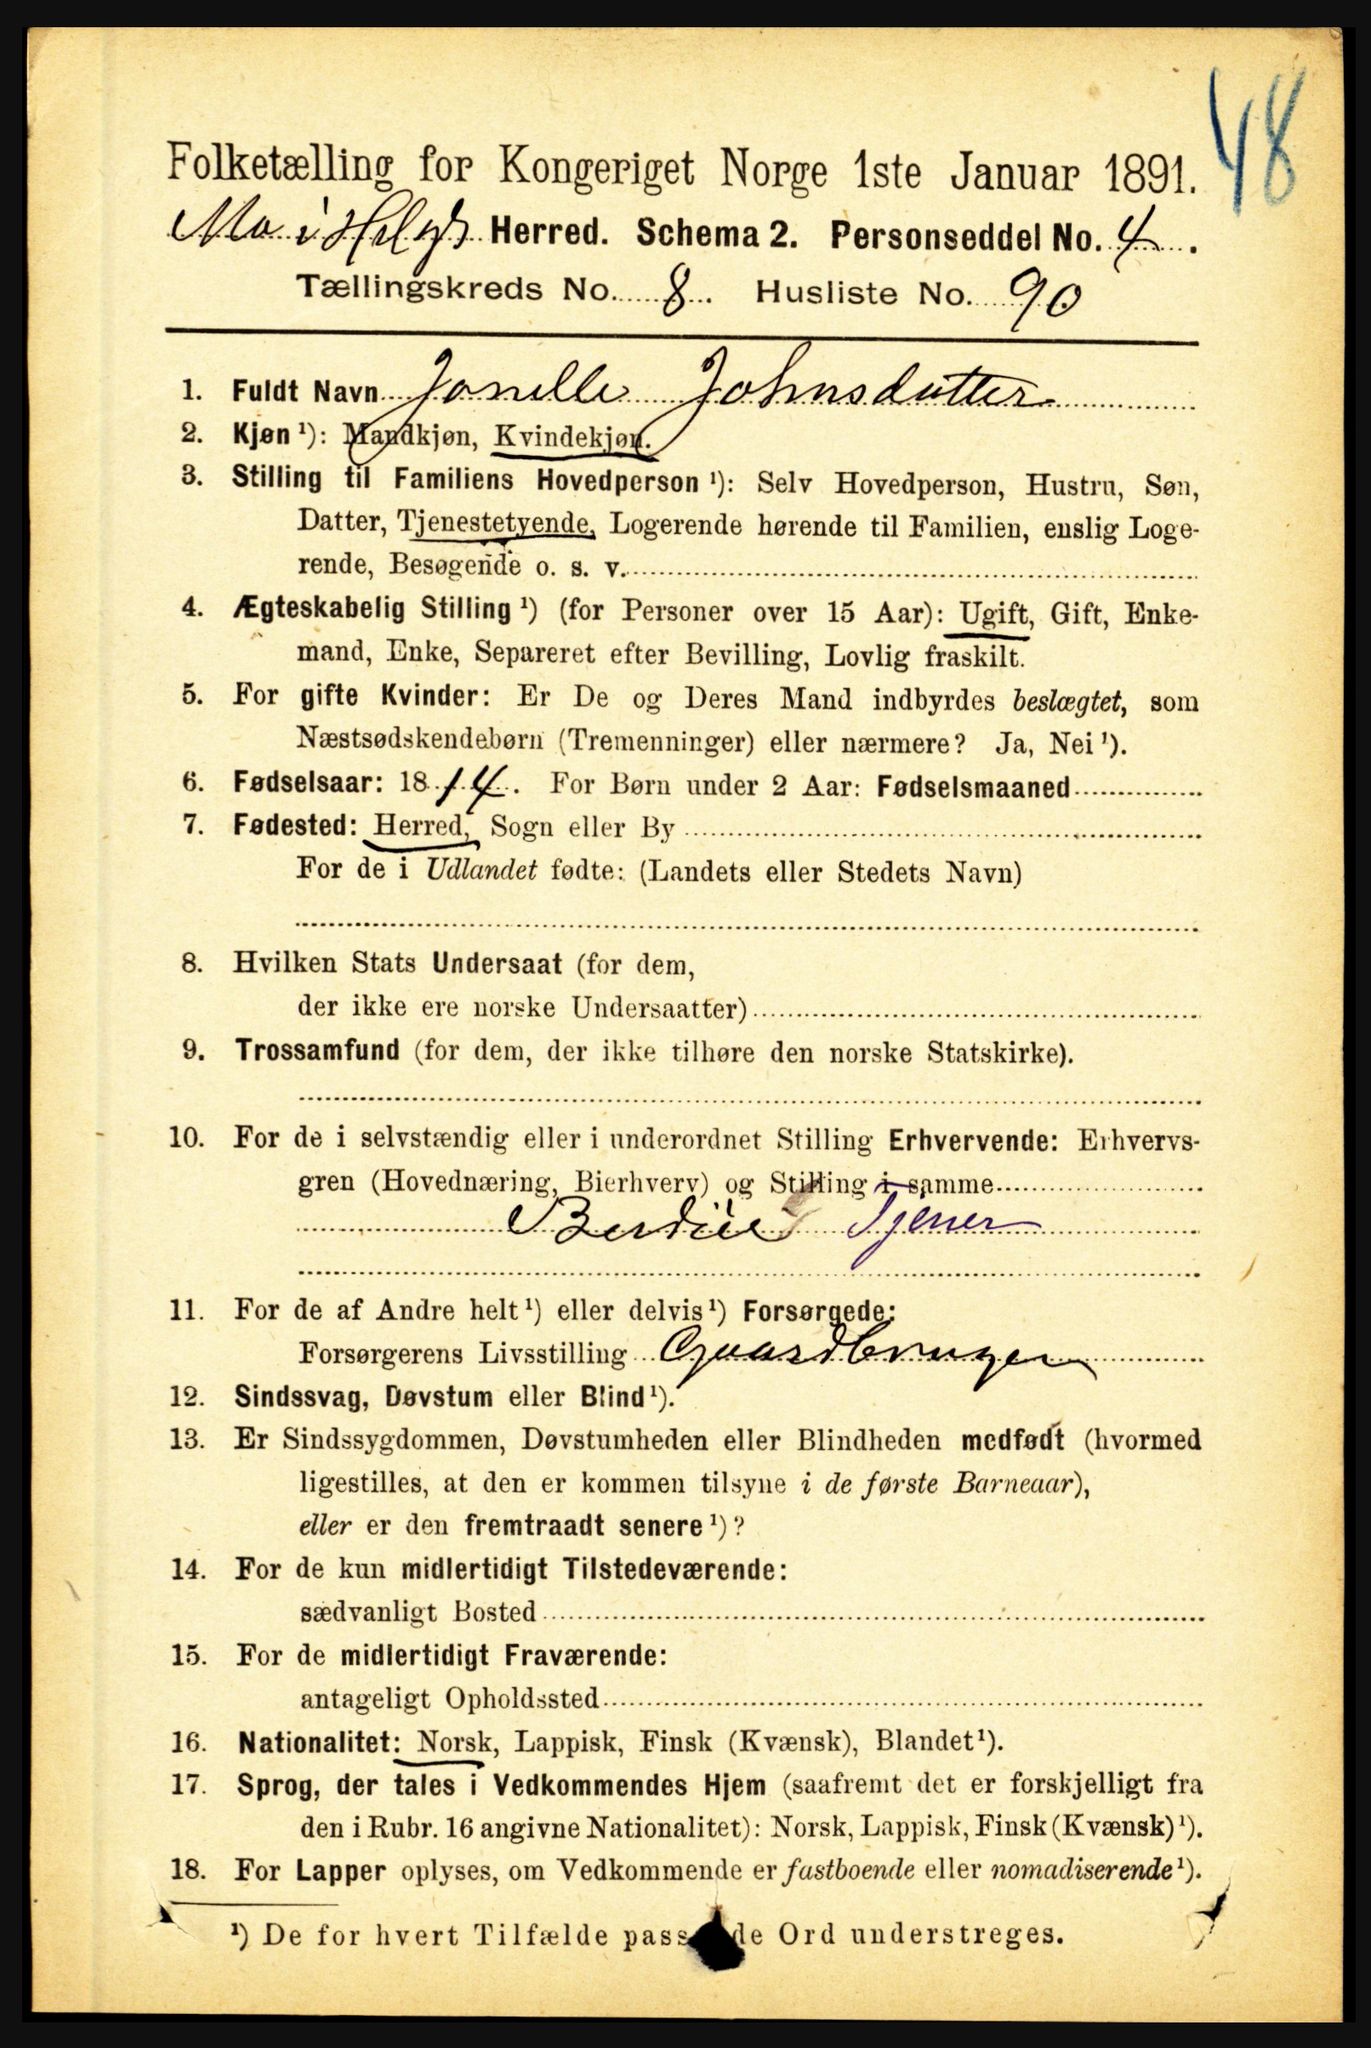 48
Folketælling for Kongeriget Norge 1ste Januar 1891.
Mo i Helgl. Herred. Schema 2. Personseddel No. 4.
Tællingskreds No. 8. Husliste No. 90
1. Fuldt Navn Jonelle Johnsdatter
2. Kjøn ¹): Mandkjøn, Kvindekjøn.
3. Stilling til Familiens Hovedperson ¹): Selv Hovedperson, Hustru, Søn,
Datter, Tjenestetyende, Logerende hørende til Familien, enslig Loge-
rende, Besøgende o. s. v.
4. Ægteskabelig Stilling ¹) (for Personer over 15 Aar): Ugift, Gift, Enke-
mand, Enke, Separeret efter Bevilling, Lovlig fraskilt.
5. For gifte Kvinder: Er De og Deres Mand indbyrdes beslægtet, som
Næstsødskendebørn (Tremenninger) eller nærmere? Ja, Nei ¹).
6. Fødselsaar: 1814. For Børn under 2 Aar: Fødselsmaaned
7. Fødested: Herred, Sogn eller By
For de i Udlandet fødte: (Landets eller Stedets Navn)
8. Hvilken Stats Undersaat (for dem,
der ikke ere norske Undersaatter)
9. Trossamfund (for dem, der ikke tilhøre den norske Statskirke).
10. For de i selvstændig eller i underordnet Stilling Erhvervende: Erhvervs-
gren (Hovednæring, Bierhverv) og Stilling i samme
Tjener
11. For de af Andre helt ¹) eller delvis ¹) Forsørgede:
Forsørgerens Livsstilling Gaardbruger
12. Sindssvag, Døvstum eller Blind ¹).
13. Er Sindssygdommen, Døvstumheden eller Blindheden medfødt (hvormed
ligestilles, at den er kommen tilsyne i de første Barneaar),
eller er den fremtraadt senere ¹)?
14. For de kun midlertidigt Tilstedeværende:
sædvanligt Bosted
15. For de midlertidigt Fraværende:
antageligt Opholdssted
16. Nationalitet: Norsk, Lappisk, Finsk (Kvænsk), Blandet ¹).
17. Sprog, der tales i Vedkommendes Hjem (saafremt det er forskjelligt fra
den i Rubr. 16 angivne Nationalitet): Norsk, Lappisk, Finsk (Kvænsk) ¹).
18. For Lapper oplyses, om Vedkommende er fastboende eller nomadiserende ¹).
¹) De for hvert Tilfælde passende Ord understreges.